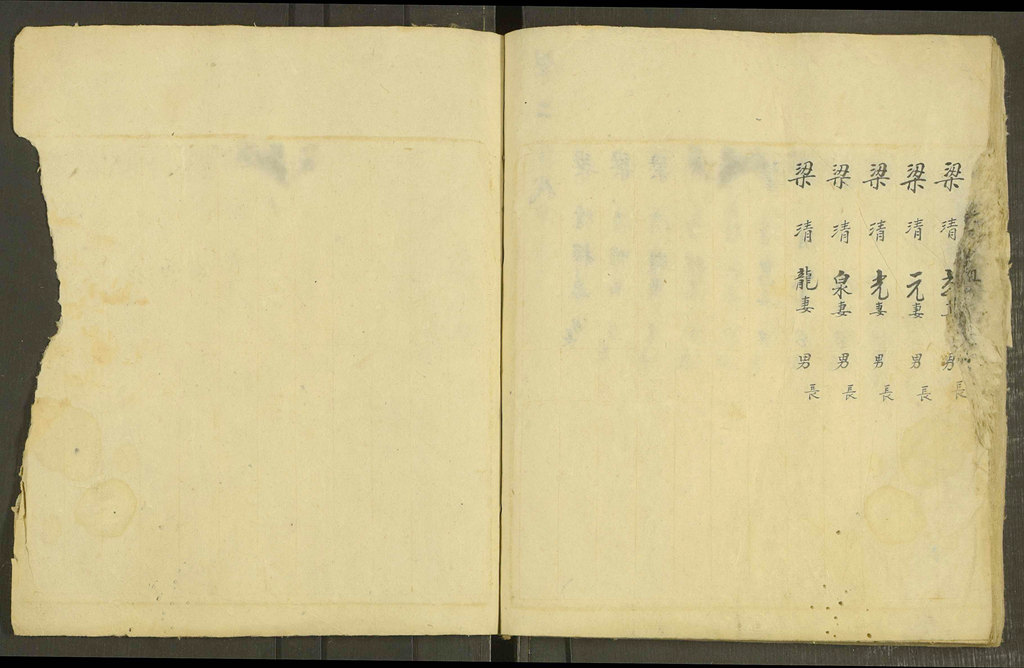 梁清男長
梁清元妻男長
梁清光妻男長
梁清泉妻男長
梁清龍妻男長